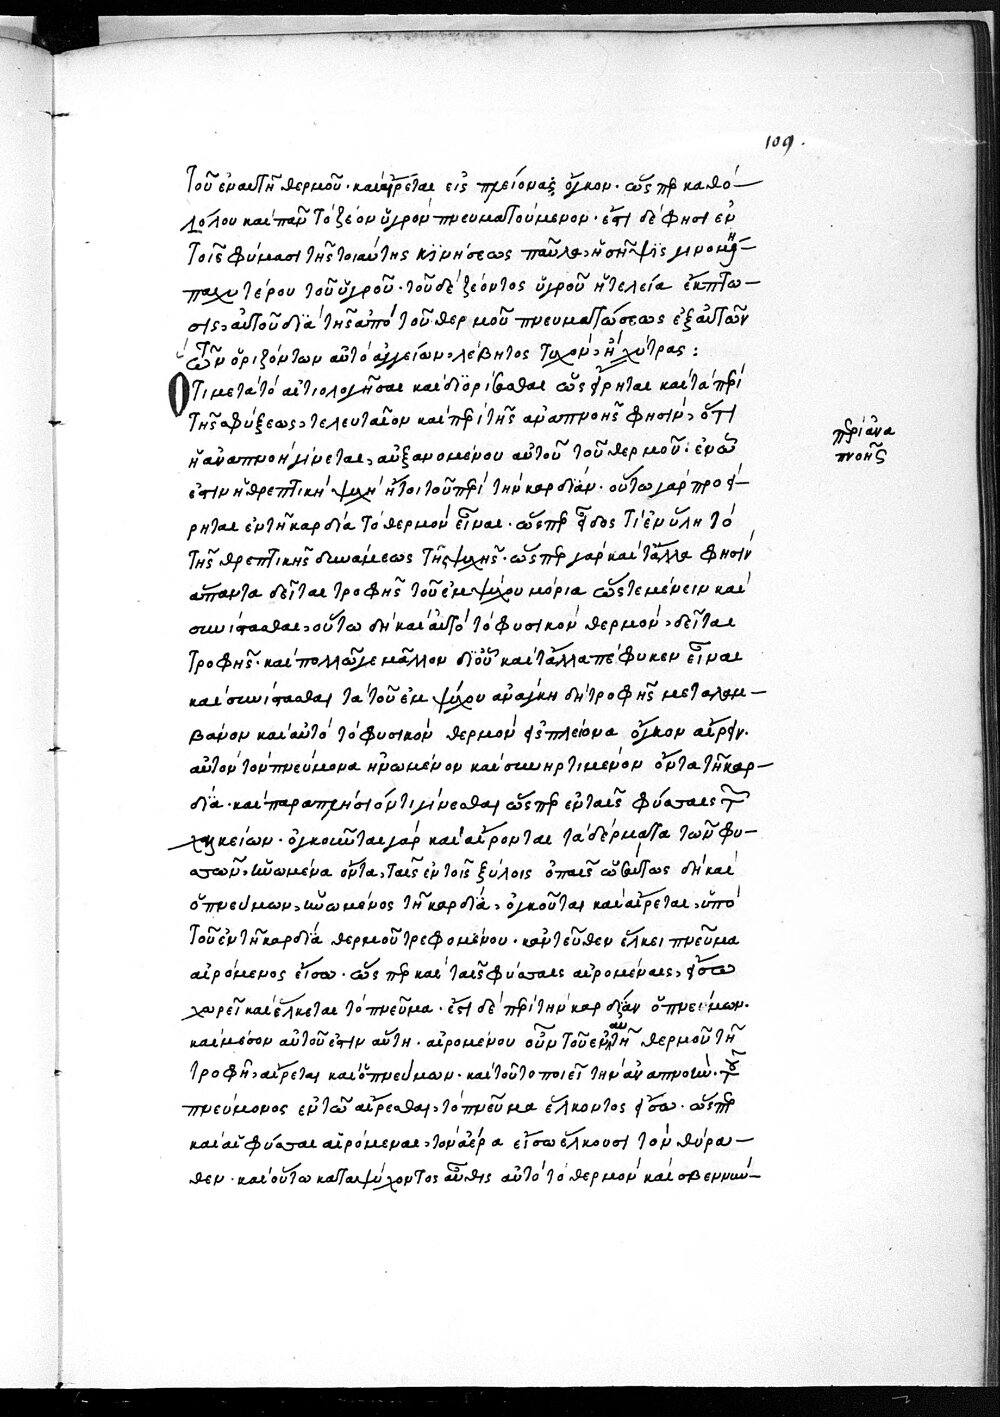 109.
τοῦ ἐν αὐτῇ θερμοῦ· καὶ αἴρεται εἰς πλείονα ὄγκον· ὥσπερ καθό-
λου καὶ πᾶν τὸ ζέον ὑγρὸν πνευματούμενον· ἔτι δέ φησι ἐν
τοῖς φύμασι τῆς τοιαύτης κινήσεως παῦλα, ἡ σῆψις γινομένη
παχυτέρου τοῦ ὑγροῦ· τοῦ δὲ ζέοντος ὑγροῦ ἡ τελεία ἔκπτω-
σις, αὐτοῦ διὰ τῆς ἀπὸ τοῦ θερμοῦ πνευματώσεως ἐξ αὐτῶν
τῶν ὁριζόντων αὐτὸ ἀγγείων, λέβητος τυχὸν, ἢ χύτρας:
Ὅτι μετὰ τὸ αἰτιολογῆσαι καὶ διορίσασθαι ὡς εἴρηται καὶ τὰ περὶ
τῆς σφύξεως, τελευταῖον καὶ περὶ τῆς ἀναπνοῆς φησὶν, ὅτι
ἡ ἀναπνοὴ γίνεται, αὐξανομένου αὐτοῦ τοῦ θερμοῦ· ἐν ᾧ
ἐστιν ἡ θρεπτικὴ ψυχὴ ἤτοι τοῦ περὶ τὴν καρδίαν· οὕτω γὰρ προεί-
ρηται ἐν τῇ καρδίᾳ τὸ θερμὸν εἶναι· ὥσπερ εἶδός τι ἐν ὕλῃ τὸ
τῆς θρεπτικῆς δυνάμεως τῆς ψυχῆς· ὥσπερ γὰρ καὶ τἄλλα φησὶν
ἅπαντα δεῖται τροφῆς τοῦ ἐμψύχου μόρια ὥστε μένειν καὶ
συνίστασθαι, οὕτω δὴ καὶ αὐτὸ τὸ φυσικὸν θερμὸν, δεῖται
τροφῆς· καὶ πολλῷ γε μᾶλλον δι' οὗ καὶ τἄλλα πέφυκεν εἶναι
καὶ συνίστασθαι τὰ τοῦ ἐμψύχου ἀνάγκη δὴ τροφῆς μεταλαμ-
βάνον καὶ αὐτὸ τὸ φυσικὸν θερμὸν εἰς πλείονα ὄγκον αἴρειν·
αὐτὸν τὸν πνεύμονα ἡνωμένον καὶ συνηρτημένον ὄντα τῇ καρ-
δίᾳ· καὶ παραπλήσιόν τι γίνεσθαι ὥσπερ ἐν ταῖς φύσαις τῶν
χαλκείων· ὀγκοῦται γὰρ καὶ αἴρονται τὰ δέρματα τῶν φυ-
σῶν, ἡνωμένα ὄντα, ταῖς ἐν τοῖς ξύλοις ὀπαῖς ὡσαύτως δὴ καὶ
ὁ πνεύμων, ἡνωμένος τῇ καρδίᾳ, ὀγκοῦται καὶ αἴρεται, ὑπὸ
τοῦ ἐν τῇ καρδίᾳ θερμοῦ τρεφομένου· κἀντεῦθεν ἕλκει πνεῦμα
αἰρόμενος εἴσω· ὥσπερ καὶ ταῖς φύσαις αἰρομέναις, εἴσω
χωρεῖ καὶ ἕλκεται τὸ πνεῦμα· ἔστι δὲ περὶ τὴν καρδίαν ὁ πνεύμων·
καὶ μέσον αὐτοῦ ἐστιν αὕτη· αἰρομένου οὖν τοῦ ἐν αὐτῇ θερμοῦ τῇ
τροφῇ, αἴρεται καὶ ὁ πνεύμων· καὶ τοῦτο ποιεῖ τὴν ἀναπνοὴν· τοῦ
πνεύμονος ἐν τῷ αἴρεσθαι, τὸ πνεῦμα ἕλκοντος εἴσω· ὥσπερ
καὶ αἱ φύσαι αἰρόμεναι, τὸν ἀέρα εἴσω ἕλκουσι τὸν θύρα-
θεν· καὶ οὕτω καταψύχοντος αὖθις αὐτὸ τὸ θερμὸν καὶ σβεννύ-
περὶ ἀνα
πνοῆς